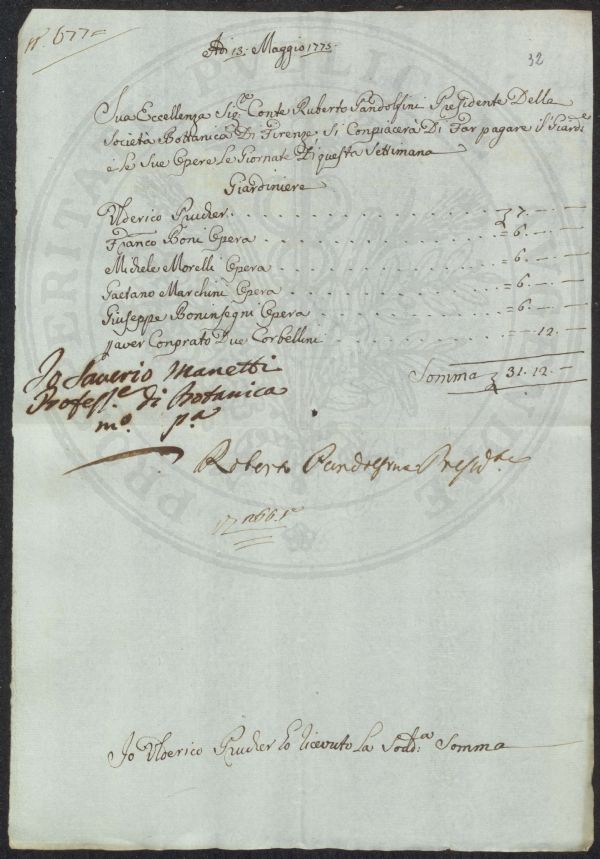 N.° 677=
32
Adi 13: Maggio 1775.
Sua Eccellenza Sig.e Conte Ruberto Pandolfini Presidente Della
Società Bottanica Di Firenze Si Conpiacerà Di Far pagare il Giard.e
e le Sue Opere Le Giornate Di questa Settimana
Giardiniere
Ulderico Prucker . . . 7. — —
Franco Boni Opera . . . = 6. — —
Michele Morelli Opera . . . = 6. — —
Gaetano Marchini Opera . . . = 6. — —
Giuseppe Boninsegni Opera . . . = 6. — —
aver Conprato Due Corbellini . . . 12. —
Somma 31. 12. —
Io Saverio Manetti
Profess.e di Botanica
m.o p.a
Roberto Pandolfini Presid.e
Io Ulderico Prucker ho ricevuto la Sodd.a Somma